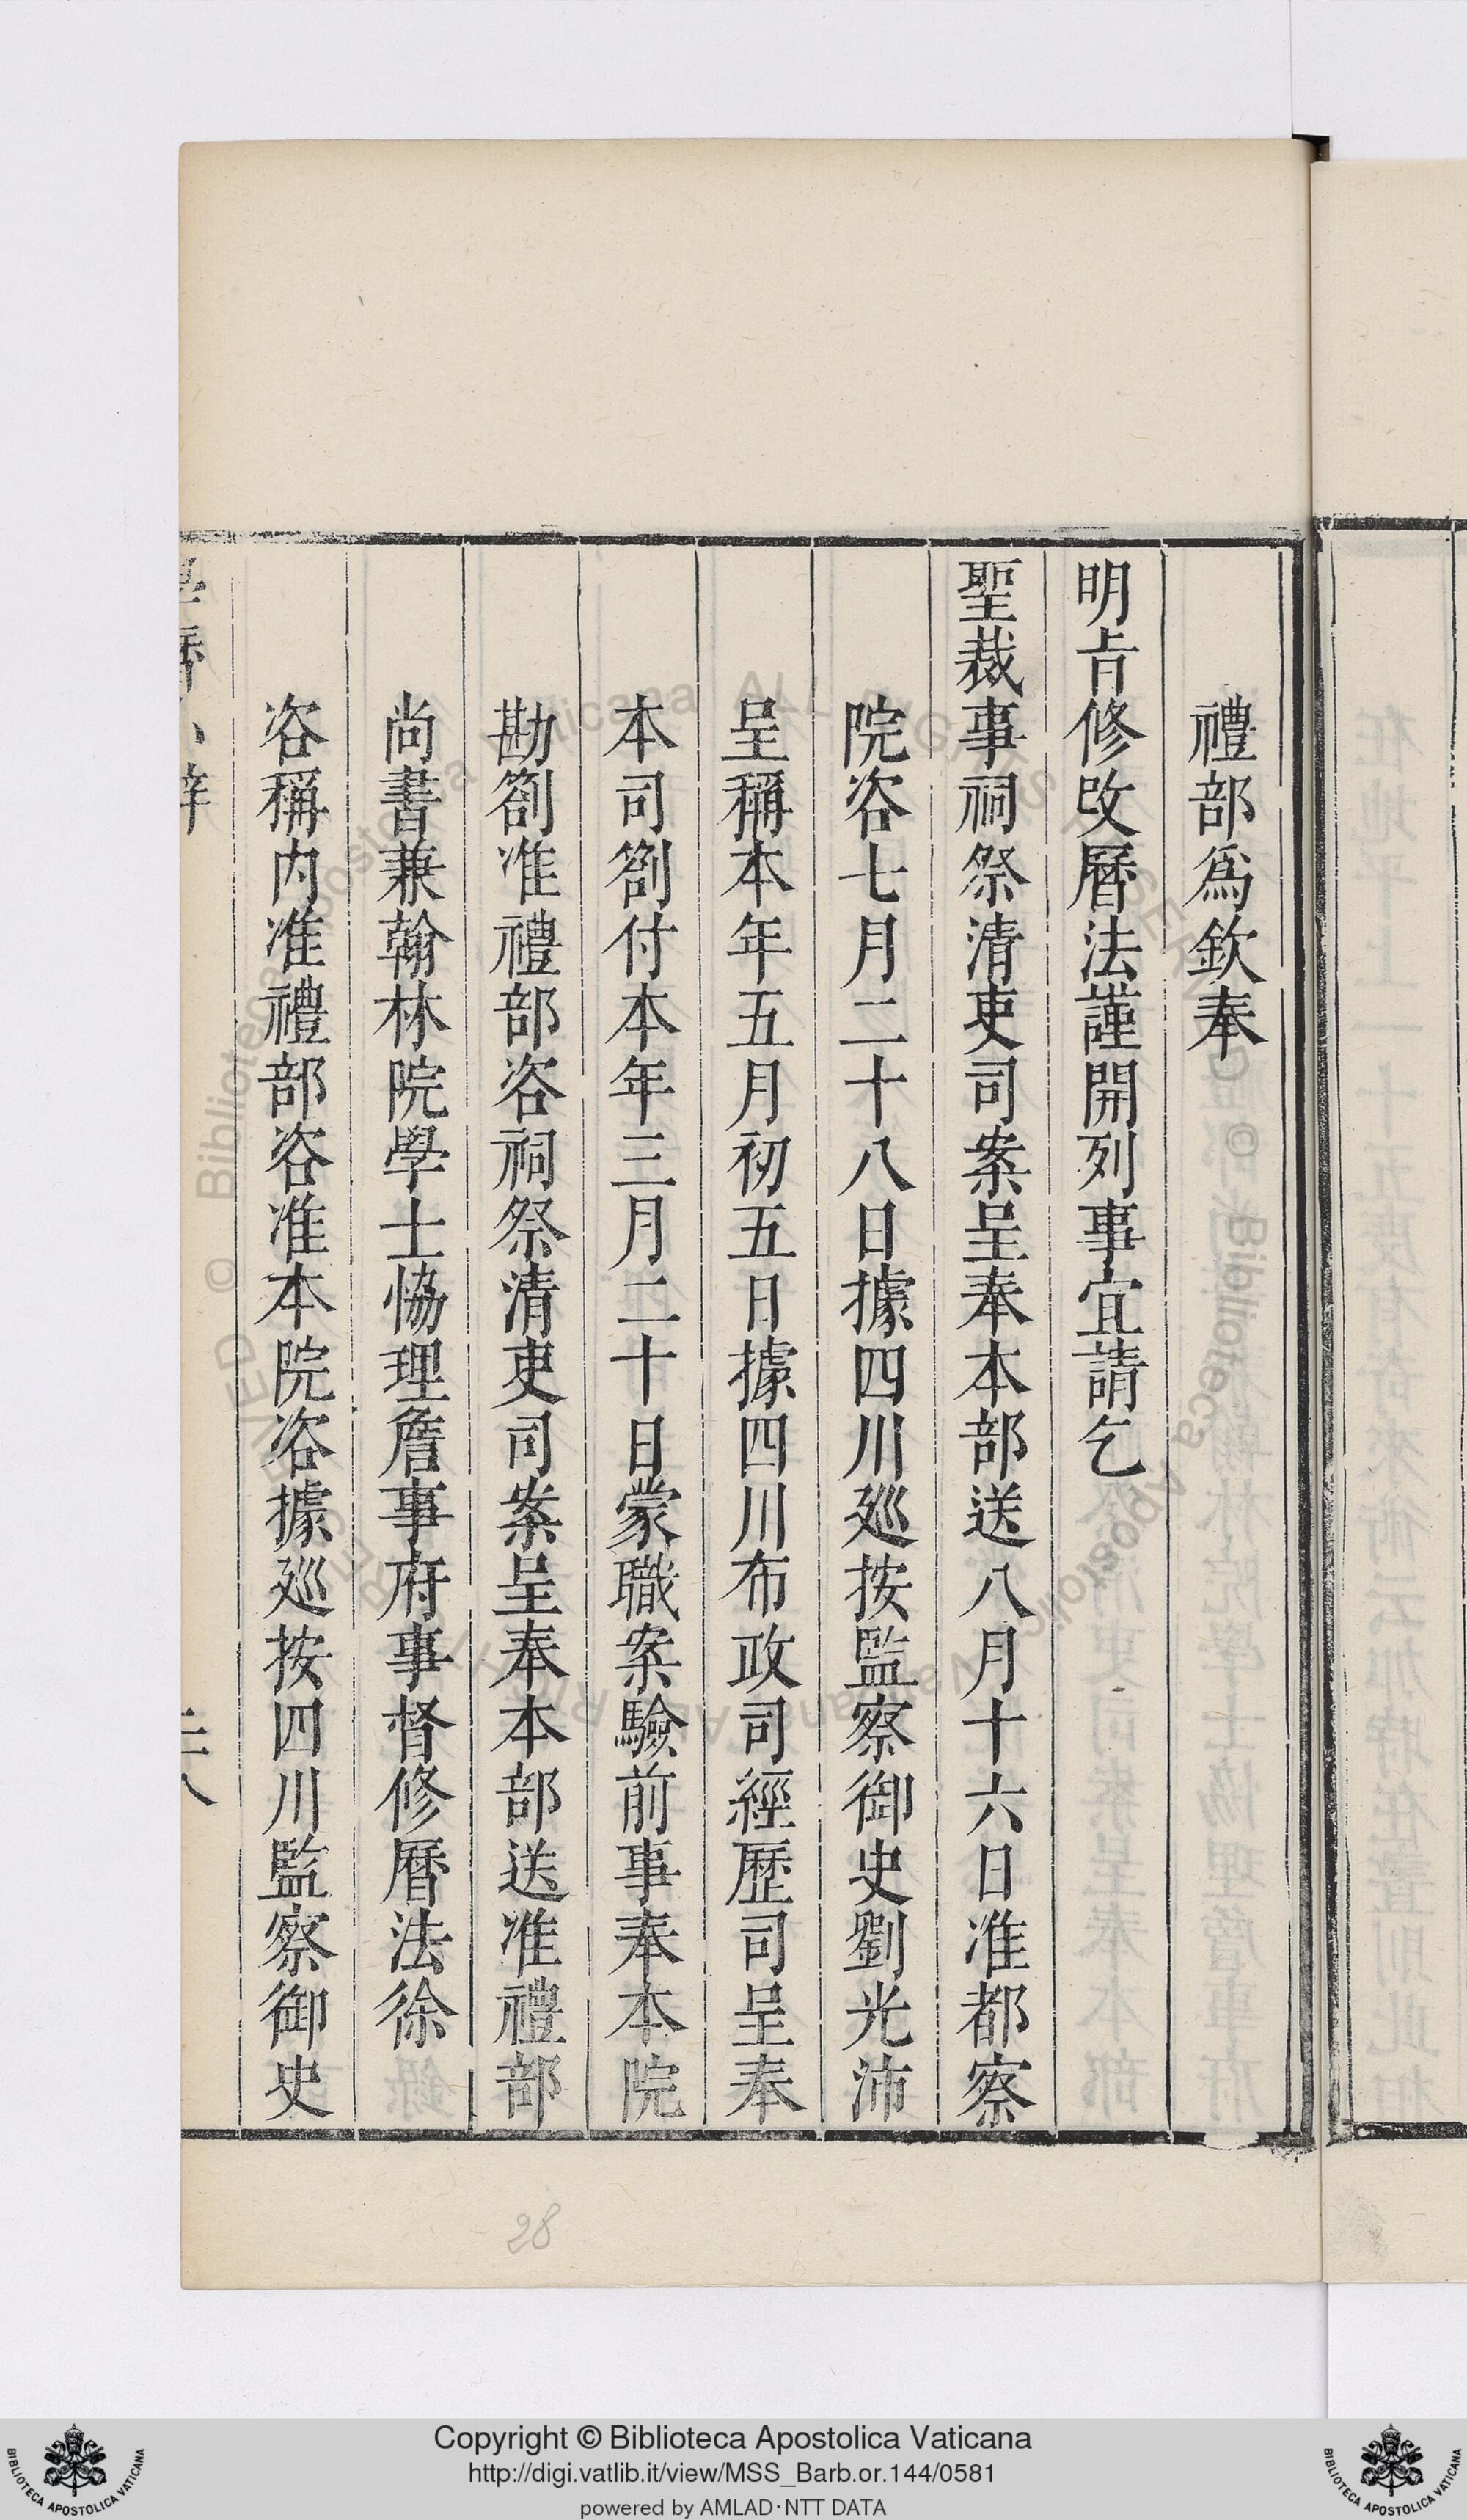 禮部爲欽奉
明旨修改曆法謹開列事宜請乞
聖裁事祠祭清吏司案呈奉本部送八月十六日准都察
院咨七月二十八日據四川廵按監察御史劉光沛
呈稱本年五月初五日據四川布政司經歷司呈奉
本司劄付本年三月二十日蒙職案驗前事奉本院
勘劄准禮部咨祠祭清吏司案呈奉本部送准禮部
尚書兼翰林院學士恊理詹事府事督修曆法徐
咨稱内准禮部咨准本院咨據廵按四川監察御史
28
Copyright © Biblioteca Apostolica Vaticana
http://digi.vatlib.it/view/MSS_Barb.or.144/0581
powered by AMLAD·NTT DATA
BIBLIOTECA APOSTOLICA VATICANA
BIBLIOTECA APOSTOLICA VATICANA